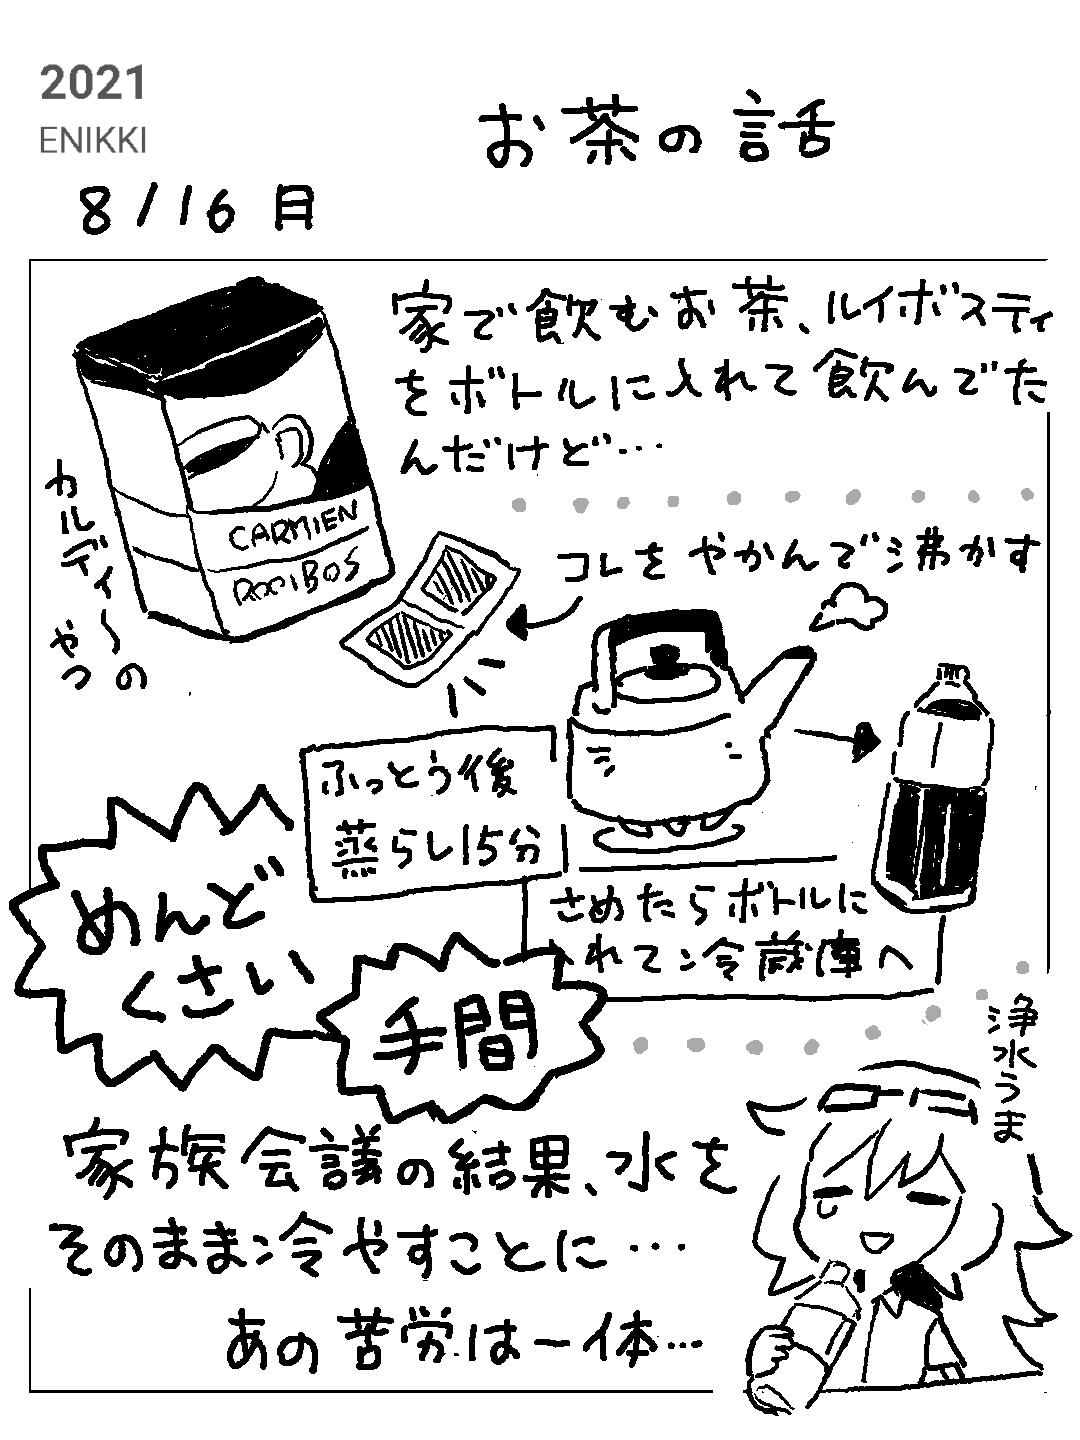 2021
ENIKKI
お茶の話
8/16 月
家で飲むお茶、ルイボスティ
をボトルに入れて飲んでた
んだけど…
カルディ～の
やつ
CARMIEN
ROOIBOS
コレをやかんで沸かす
ふっとう後
蒸らし15分
さめたらボトルに
入れて冷蔵庫へ
めんど
くさい
手間
浄水うま
家族会議の結果、水を
そのまま冷やすことに…
あの苦労は一体…